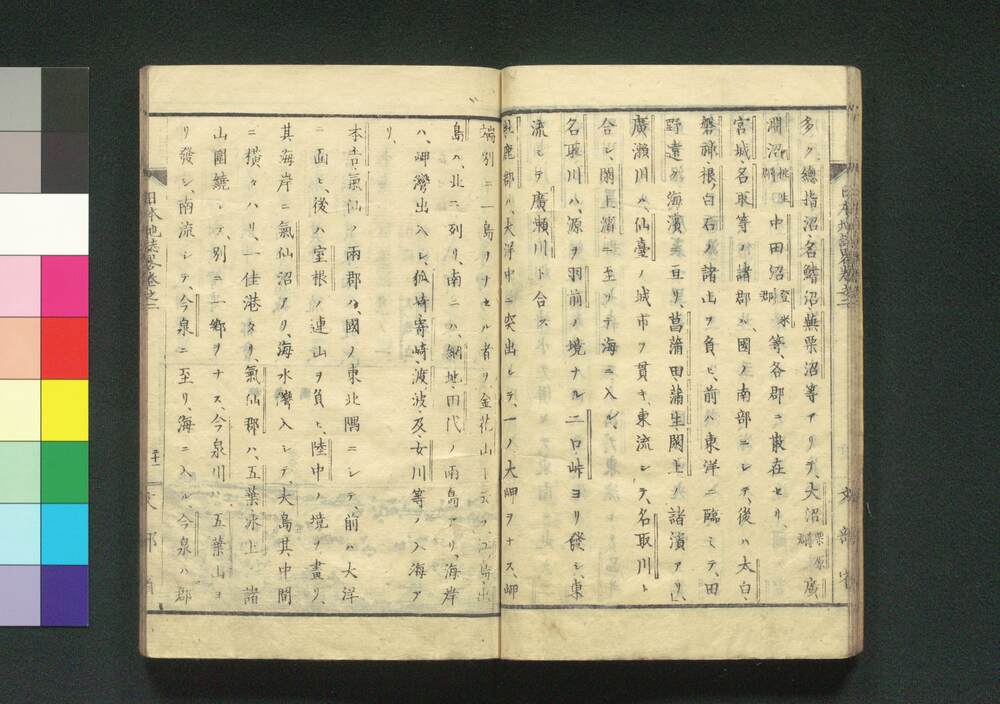 多ク、總指沼、名鰭沼、蕪栗沼等アリテ、大沼栗原郡廣
淵沼桃生郡中田沼登米郡等、各郡ニ散在セリ、
宮城、名取等ノ諸郡ハ、國ノ南部ニシテ、後ハ太白、
磐神、根白石ノ諸山ヲ負ヒ、前ハ東洋ニ臨ミテ、田
野遠ク海濱ニ亘リ、菖蒲田、蒲生、閖上ノ諸濱アリ、
廣瀬川ハ、仙臺ノ城市ヲ貫キ、東流シテ、名取川ト
合シ、閖上濱ニ至リテ海ニ入ル、
名取川ハ、源ヲ羽前ノ境ナル二口峠ヨリ發シ、東
流シテ廣瀬川ト合ス、
牡鹿郡ハ、大洋中ニ突出シテ、一ノ大岬ヲナス、岬
端別ニ一島ヲナセル者ヲ、金花山ト云フ、
島ハ、北ニ列リ、南ニハ、網地、田代ノ兩島アリ、海岸
ハ、岬灣出入シ、狐崎、寄崎、渡波、及女川等ノ入海ア
リ、
本吉、氣仙ノ兩郡ハ、國ノ東北隅ニシテ、前ハ大洋
ニ面ヒ、後ハ室根ノ連山ヲ負ヒ、陸中ノ境ヲ盡リ、
其海岸ニ氣仙沼アリ、海水灣入シテ、大島其中間
ニ横タハリ、一佳港タリ、氣仙郡ハ、五葉氷上ノ諸
山圍繞シテ、別ニ一郷ヲナス、今泉川ハ、五葉山ヨ
リ發シ、南流シテ、今泉ニ至リ、海ニ入ル、今泉ハ郡
日本地誌畧卷之二
三十一
文部省